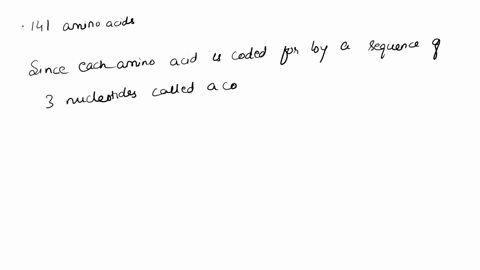 · 141 amino acids
Since each amino acid is coded for by a sequence of
3 nucleotides called a co